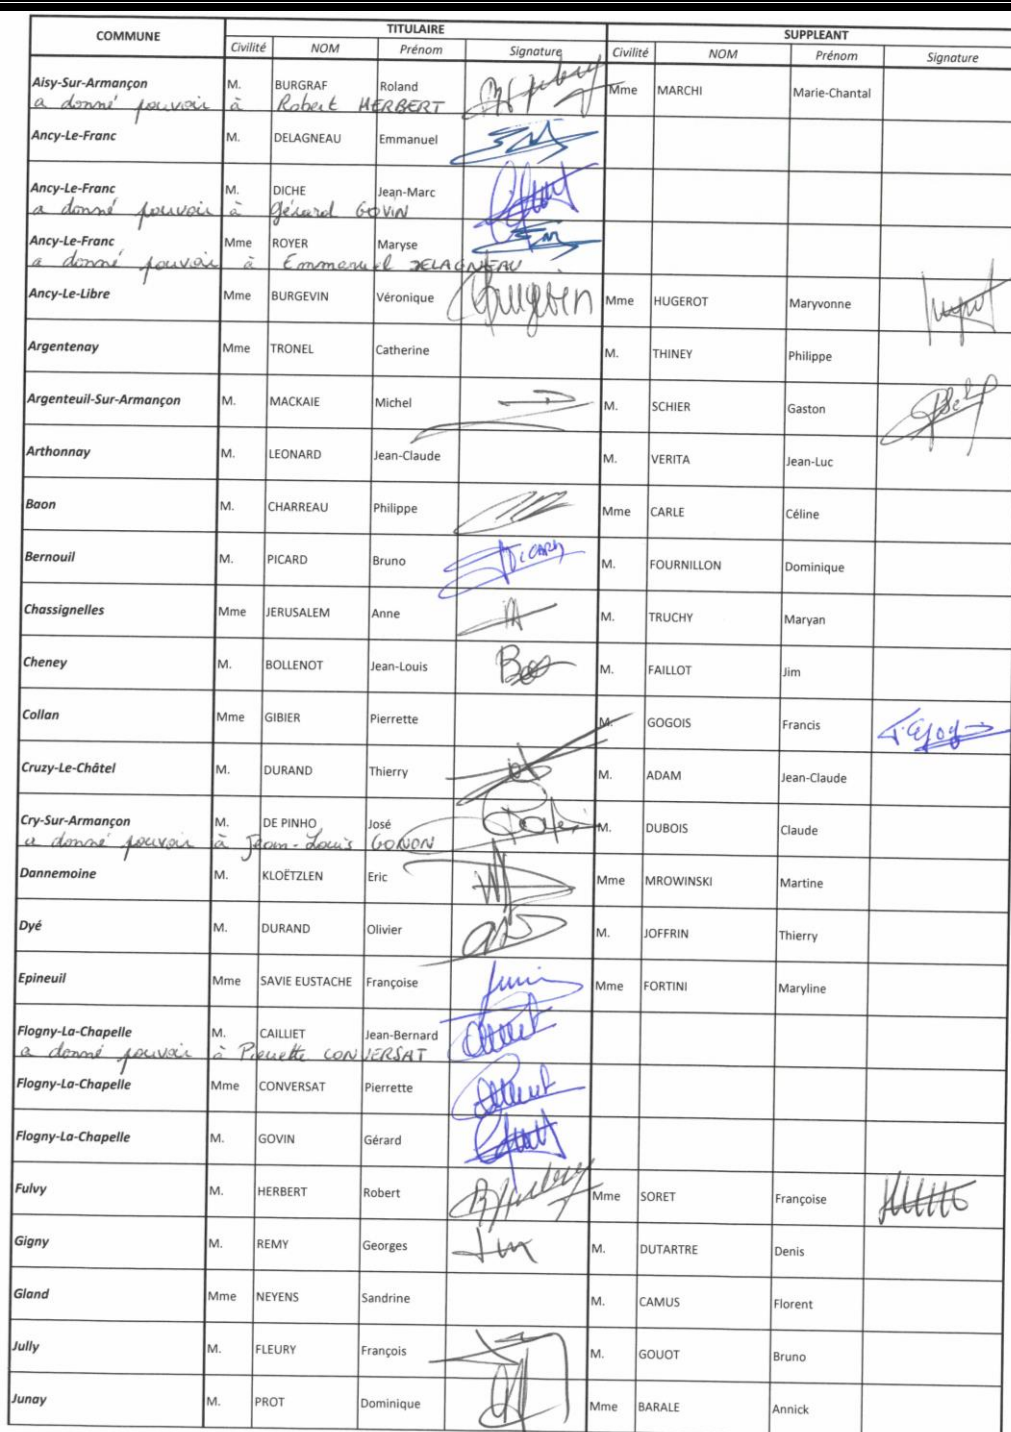 COMMUNE TITULAIRE SUPPLEANT
Civilité NOM Prénom Signature Civilité NOM Prénom Signature
Aisy-Sur-Armançon M. BURGRAF Roland Mme MARCHI Marie-Chantal
a donné pouvoir à Robert HERBERT
Ancy-Le-Franc M. DELAGNEAU Emmanuel
Ancy-Le-Franc M. DICHE Jean-Marc
a donné pouvoir à Gérard GOVIN
Ancy-Le-Franc Mme ROYER Maryse
a donné pouvoir à Emmanuel DELAGNEAU
Ancy-Le-Libre Mme BURGEVIN Véronique Mme HUGEROT Maryvonne
Argentenay Mme TRONEL Catherine M. THINEY Philippe
Argenteuil-Sur-Armançon M. MACKAIE Michel M. SCHIER Gaston
Arthonnay M. LEONARD Jean-Claude M. VERITA Jean-Luc
Baon M. CHARREAU Philippe Mme CARLE Céline
Bernouil M. PICARD Bruno PICARD M. FOURNILLON Dominique
Chassignelles Mme JERUSALEM Anne M. TRUCHY Maryan
Cheney M. BOLLENOT Jean-Louis M. FAILLOT Jim
Collan Mme GIBIER Pierrette M. GOGOIS Francis
Cruzy-Le-Châtel M. DURAND Thierry M. ADAM Jean-Claude
Cry-Sur-Armançon M. DE PINHO José M. DUBOIS Claude
a donné pouvoir à Jean-Louis GONON
Dannemoine M. KLOËTZLEN Eric Mme MROWINSKI Martine
Dyé M. DURAND Olivier M. JOFFRIN Thierry
Epineuil Mme SAVIE EUSTACHE Françoise Mme FORTINI Maryline
Flogny-La-Chapelle M. CAILLIET Jean-Bernard
a donné pouvoir à Pierrette CONVERSAT
Flogny-La-Chapelle Mme CONVERSAT Pierrette
Flogny-La-Chapelle M. GOVIN Gérard
Fulvy M. HERBERT Robert Mme SORET Françoise
Gigny M. REMY Georges M. DUTARTRE Denis
Gland Mme NEYENS Sandrine M. CAMUS Florent
Jully M. FLEURY François M. GOUOT Bruno
Junay M. PROT Dominique Mme BARALE Annick